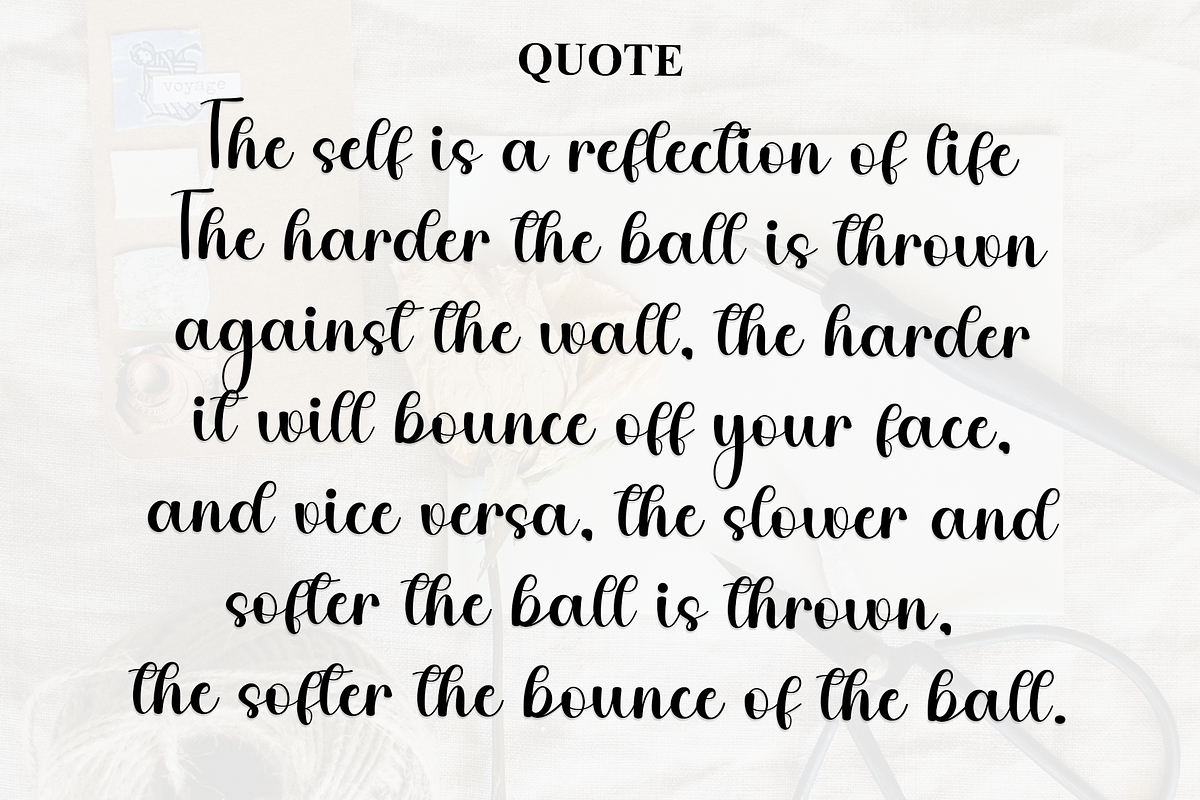 QUOTE
voyage
The self is a reflection of life
The harder the ball is thrown
against the wall, the harder
it will bounce off your face,
and vice versa, the slower and
softer the ball is thrown,
the softer the bounce of the ball.